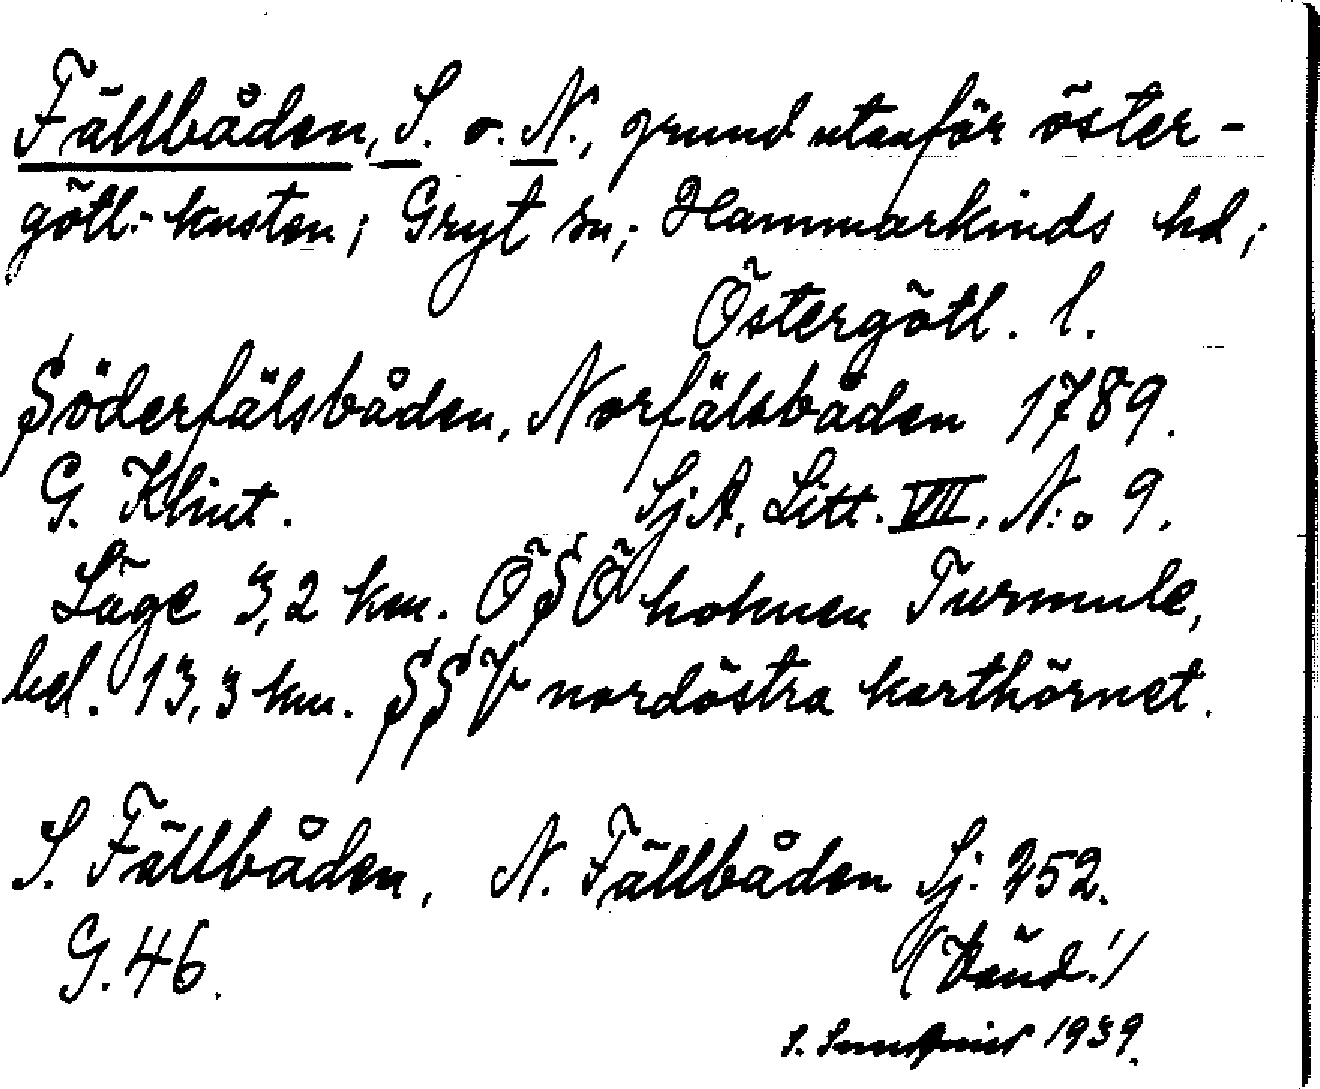 Fällbåden, S. o. N., grund utanför öster-
götl.-kusten; Gryt sn; Hammarkinds hd;
Östergötl. l.
Söderfälsbåden, Norfälsbåden 1789.
G. Klint. SjA, Litt. VIII, N:o 9.
Läge 3,2 km. ÖSÖ holmen Turmule,
bel. 13,3 km. SSV nordöstra karthörnet.
S. Fällbåden, N. Fällbåden Sj: 252.
G. 46.
(Vänd!)
S. 1939.